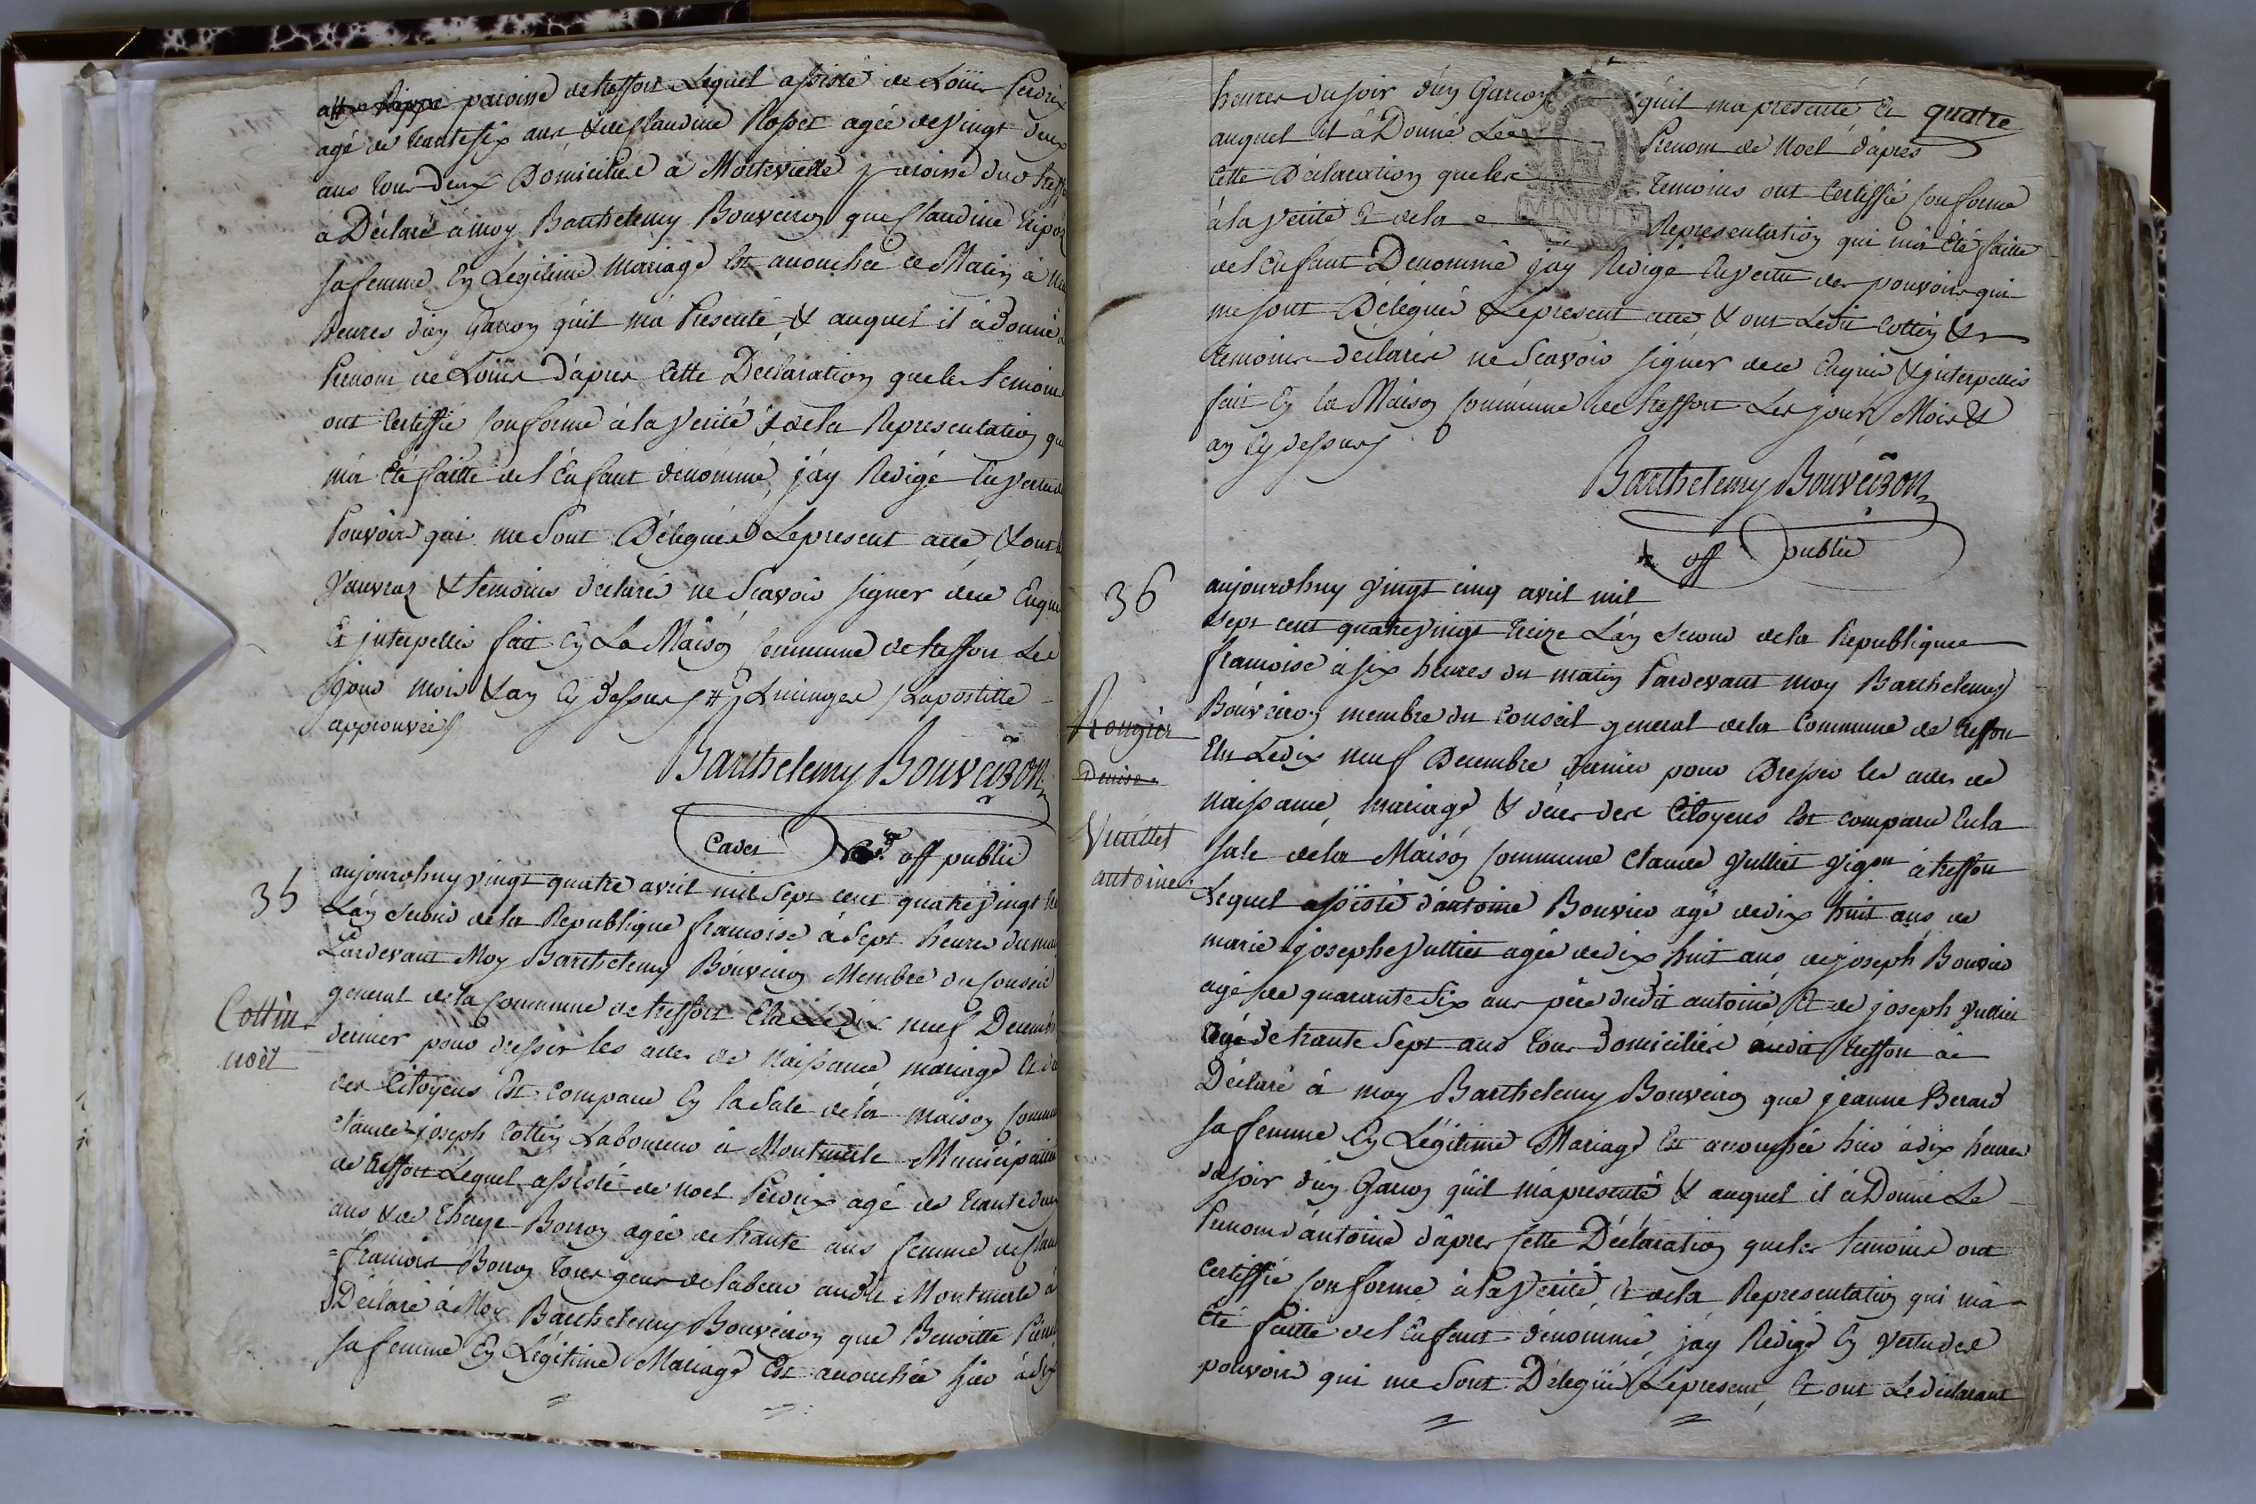 paroisse de treffort Lequel assisté de Loüis Perdrix
agé de trante six ans & de Claudine Rosset agée de vingt deux
ans tous deux Domiciliés à Montevielle paroisse dud Treff
a Déclaré à moy Barthelemy Bouveiron que Claudine
sa femme En Légitime Mariage Est acouchée ce Matin à
heures d'un Garcon qu'il m'a Présenté & auquel il à donné
Prenom de Loüis D'apres Cette Déclaration que les Temoins
ont Certiffié conforme à la verité & de la Representation qui
m'a été faitte de l'Enfant dénommé, j'ay Redigé En vertu
Pouvoirs qui me Sont Délegués Le present acte & ont
& temoins déclaré ne Scavoir signer de ce Enquis
Et interpellés fait En La Maison Commune de treffort Les
jour mois & an cy dessus Lapostille
approuvées
Barthelemy Bouveiron
off public
35
aujourdhuy vingt quatre avril mil Sept cent quatre vingt
L'an second de la Republique francoise à Sept heures du
Pardevant Moy Barthelemy Bouveiron Membre du Conseil
general de la Commune de treffort Elu Le dix neuf Decembre
dernier pour dresser les actes de Naissance mariage Et
des Citoyens Est comparu En la Sale de la maison Commune
Claude joseph Cottin Laboureur à Montmerle Municipalité
de treffort Lequel assisté de noel Perdrix agé de trante deux
ans & de Borron agée de trante ans femme de
francois Borron tous gens de labeur audit Montmerle a
Déclaré à Moy Barthelemy Bouveiron que Benoitte
sa femme En Légitime Mariage Est acouchée hier à
Cottin
noël
heures du soir d'un Garcon qu'il ma presenté Et quatre
auquel il à Donné Le Prenom de Noel d'apres
Cette Déclaration que les Temoins ont Certiffié conforme
à la verité & de la Representation qui m'a été faitte
MINUTE
de l'Enfant Denommé j'ay Redigé En vertu des pouvoirs qui
me sont Délegués Le present acte & ont Ledit Cottin &
temoins déclarés ne Scavoir signer de ce Enquis & interpellés
fait En la Maison Commune de treffort Les jour Mois &
an Cy dessus
Barthelemy Bouveiron
off public
36
aujourdhuy vingt cinq avril mil
sept cent quatre vingt treize L'an second de la Republique
francoise à six heures du matin Pardevant moy Barthelemy
Bouveiron membre du Conseil general de la Commune de treffort
Elu Le dix neuf Decembre dernier pour Dresser les actes de
Naissance, mariage & déces des Citoyens Est comparu En la
sale de la Maison Commune Claude Vulliet vigon à treffort
Lequel assisté d'antoine Bouvier agé de dix huit ans de
marie josephe Vulliet agée de dix huit ans de joseph Bouvier
agé de quarante six ans pere dudit antoine, & de joseph Vulliet
agé de trante Sept ans tous domiciliés audit treffort à
Déclaré à moy Barthelemy Bouveiron que jeanne Berard
sa femme En Légitime Mariage Est acouchée hier à dix heures
du soir d'un Garcon qu'il m'a presenté & auquel il à Donné Le
Prenom d'antoine d'apres Cette Déclaration que les temoins ont
Certiffié conforme à la Verité & de la Representation qui m'a
été faitte de l'Enfant dénommé, j'ay Redigé En Vertu des
pouvoirs qui me Sont Délegués Le present, Et ont Le déclarant
Rougier
Denise
Vuillet
antoine